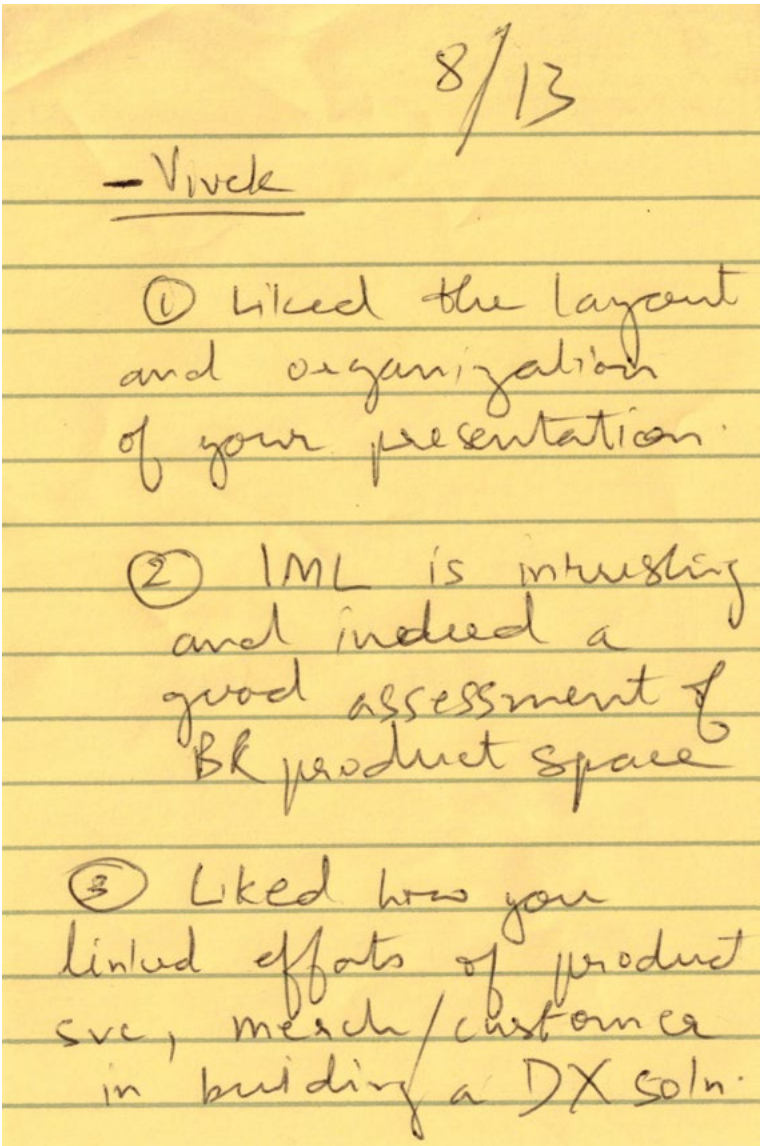 8/13
- Vivek
① Liked the layout
and organization
of your presentation.
② IML is intrusting
and indeed a
good assessment of
BR product space
③ Liked how you
linked efforts of product
svc, merch/customer
in building a DX soln.